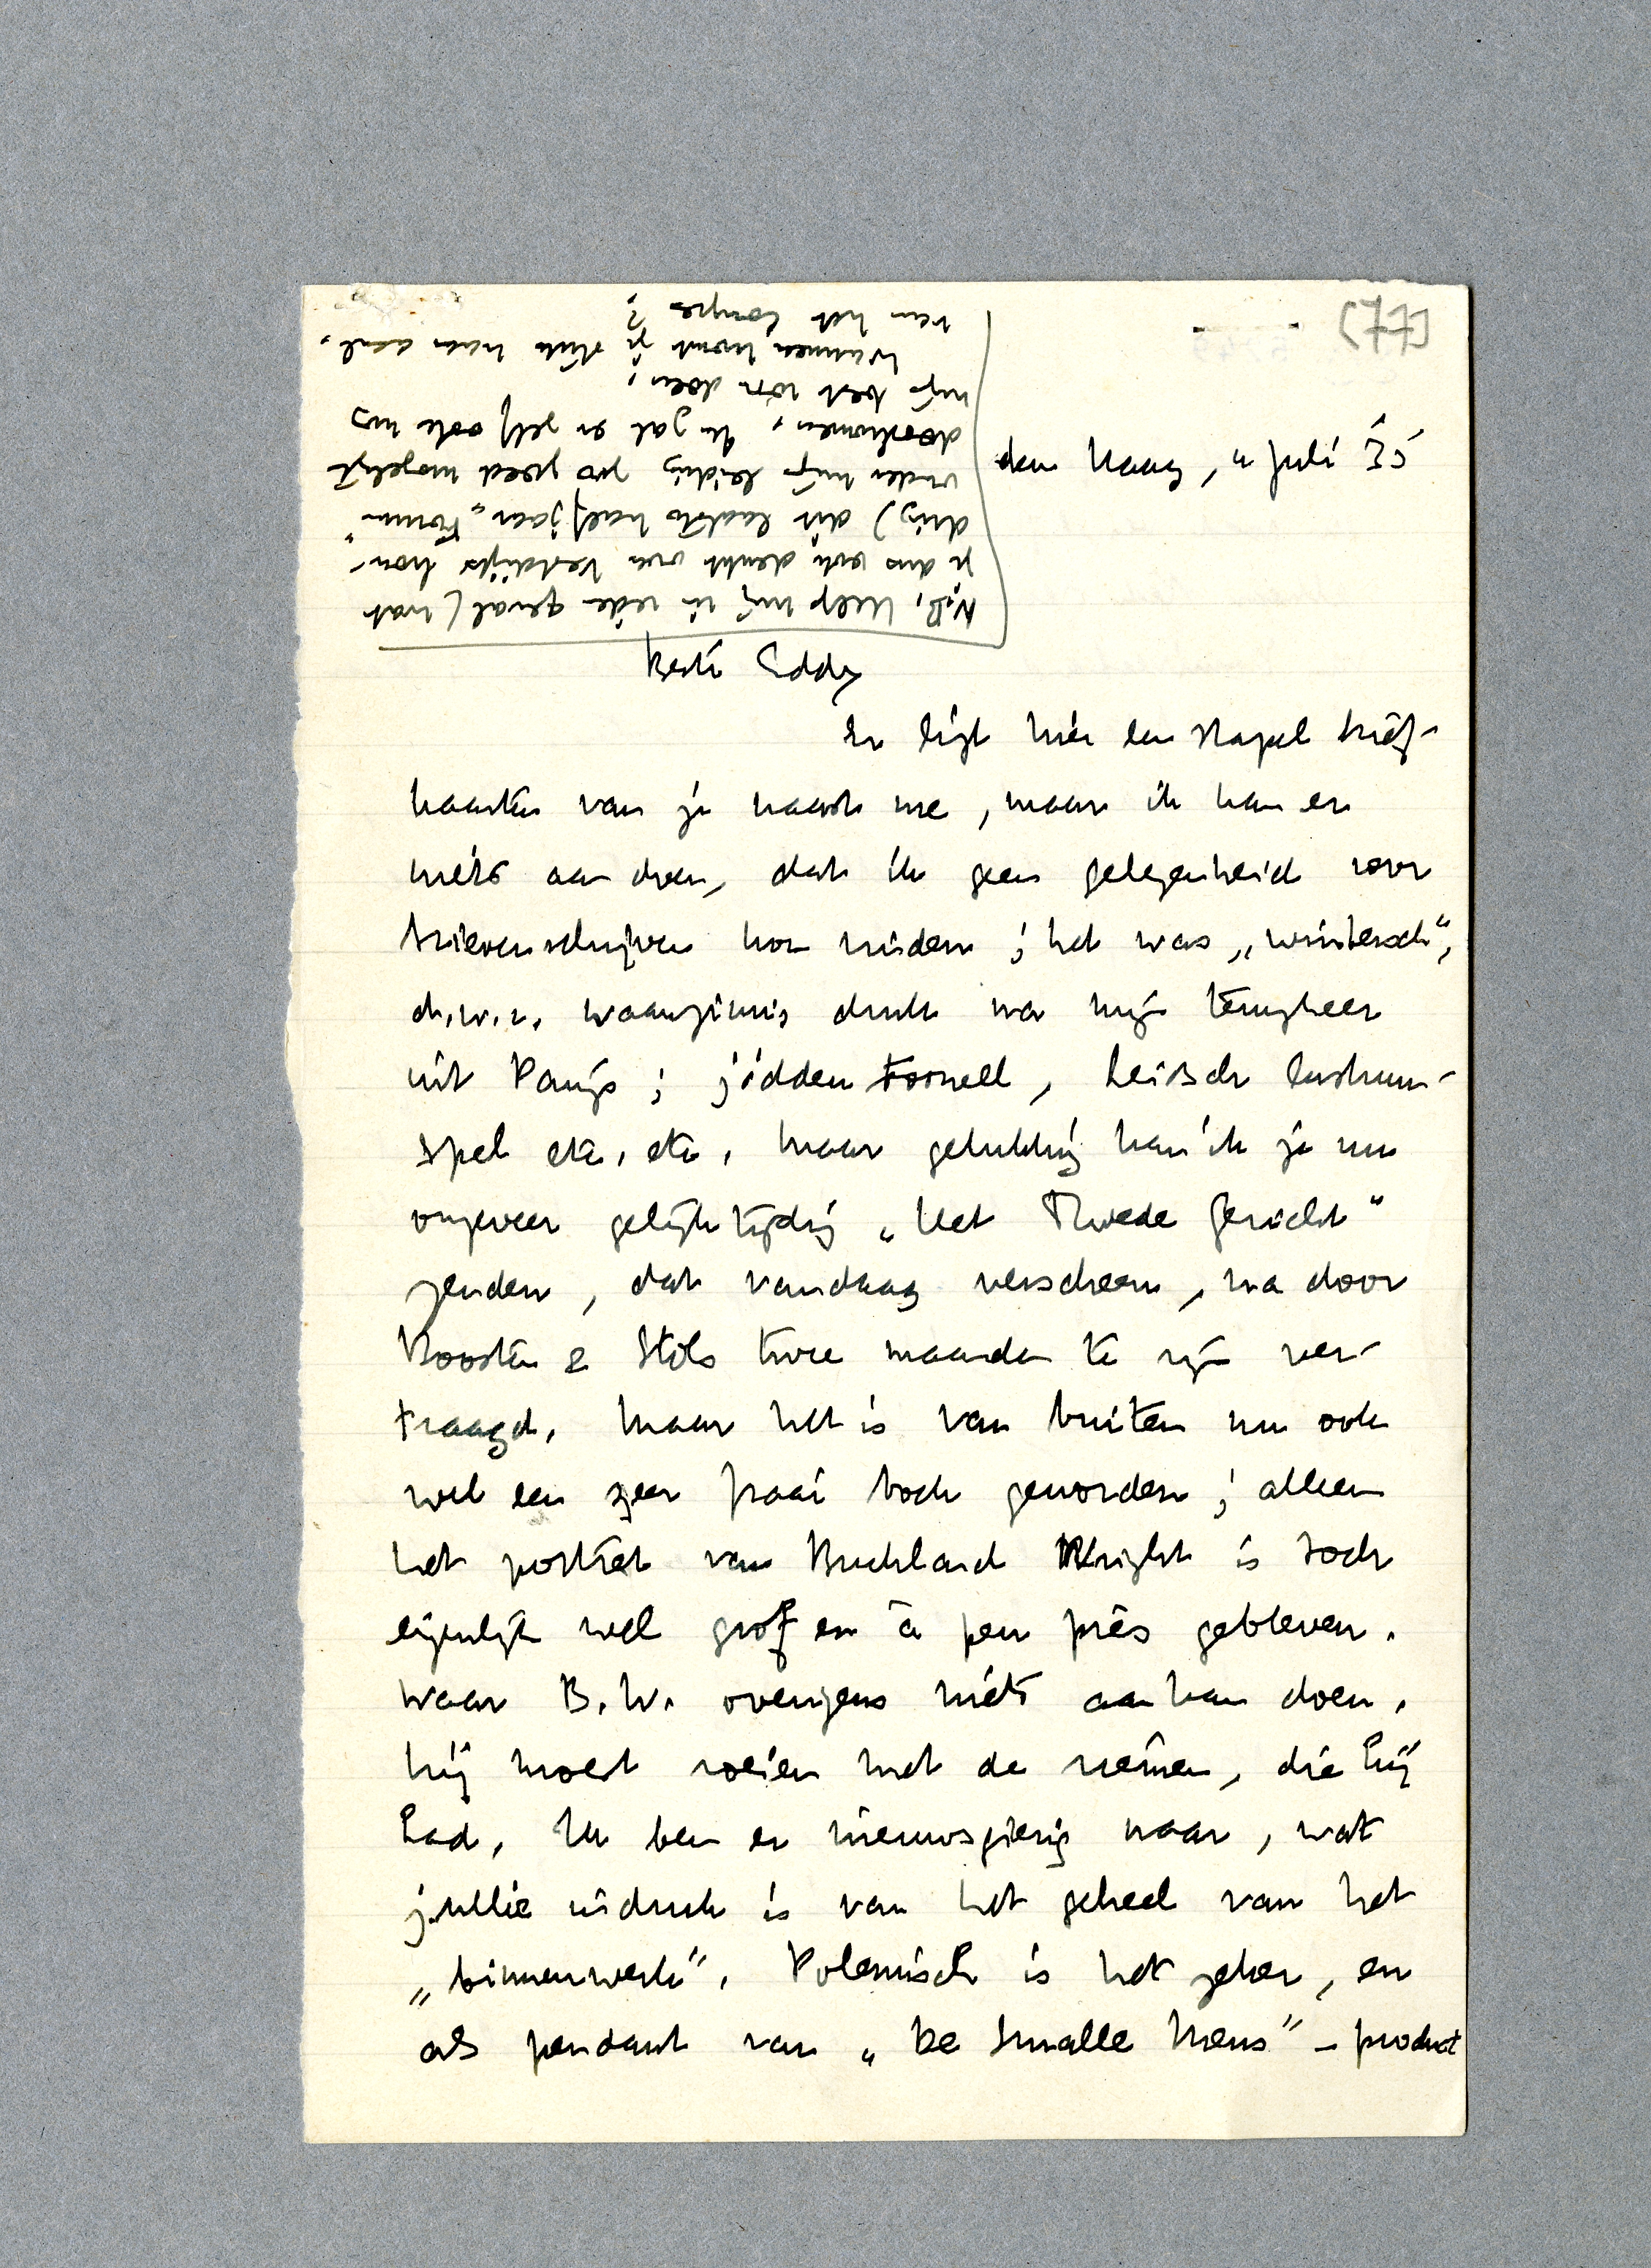 (77)
den Haag, 4 Juli 35
N.B. Help mij in ieder geval (wat
je dus ook denkt over Vestdijks hou-
ding) dit laatste halfjaar „Forum"
onder mijn leiding zoo goed mogelijk
doorkomen. Ik zal er zelf ook nog
mijn best voor doen.
Wanneer komt je stuk naar aanl.
van het Congres?
Beste Eddy
Er ligt hier een stapel brief-
kaarten van je naast me, maar ik kan er
niets aan doen, dat ik geen gelegenheid voor
brievenschrijven kon vinden; het was „wintersch",
d.w.z. waanzinnig druk na mijn terugkeer
uit Parijs; jidden tooneel, Leidsch lustrum-
spel etc. etc. Maar gelukkig kan ik je nu
ongeveer gelijktijdig „Het Tweede Gezicht"
zenden, dat vandaag verscheen, na door
Boosten & Stols twee maanden te zijn ver-
traagd. Maar het is van buiten nu ook
wel een zeer fraai boek geworden; alleen
het portret van Buckland Wright is toch
eigenlijk wel grof en à peu près gebleven.
Waar B.W. overigens niets aan kan doen.
hij moest roeien met de riemen, die hij
had. Ik ben er nieuwsgierig naar, wat
jullie indruk is van het geheel van het
„binnenwerk". Polemisch is het zeker, en
als pendant van „De Smalle Mens" – product